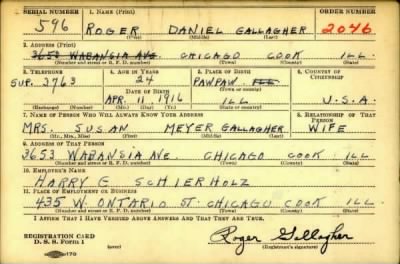 SERIAL NUMBER 1. NAME (Print) ORDER NUMBER
596 ROGER DANIEL GALLAGHER 2046
(First) (Middle) (Last)
2. ADDRESS (Print)
3650 WABANSIA AVE CHICAGO COOK ILL
(Number and street or R. F. D. number) (Town) (County) (State)
3. TELEPHONE 4. AGE IN YEARS 5. PLACE OF BIRTH 6. COUNTRY OF CITIZENSHIP
24 PAWPAW ILL
SUP. 3763 DATE OF BIRTH (Town or county)
APR. 11 1916 ILL U.S.A.
(Exchange) (Number) (Mo.) (Day) (Yr.) (State or country)
7. NAME OF PERSON WHO WILL ALWAYS KNOW YOUR ADDRESS 8. RELATIONSHIP OF THAT PERSON
MRS. SUSAN MEYER GALLAGHER WIFE
(Mr., Mrs., Miss) (First) (Middle) (Last)
9. ADDRESS OF THAT PERSON
3653 WABANSIA AVE. CHICAGO COOK ILL
(Number and street or R. F. D. number) (Town) (County) (State)
10. EMPLOYER'S NAME
HARRY G SCHIERHOLZ
11. PLACE OF EMPLOYMENT OR BUSINESS
435 W. ONTARIO ST. CHICAGO COOK ILL.
(Number and street or R. F. D. number) (Town) (County) (State)
I AFFIRM THAT I HAVE VERIFIED ABOVE ANSWERS AND THAT THEY ARE TRUE.
REGISTRATION CARD
D. S. S. Form 1
(over)
Roger Gallagher
(Registrant's signature)